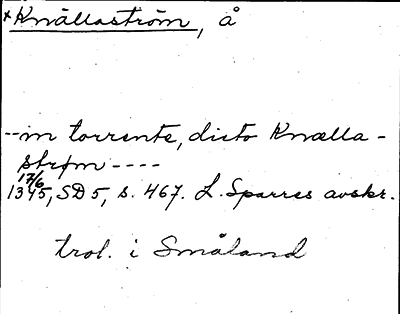 *Knällaström, å
--in torrente, dicto Knælla-
strøm ----
17/6
1345, SD 5, s. 467. L. Sparres avskr.
trol. i Småland